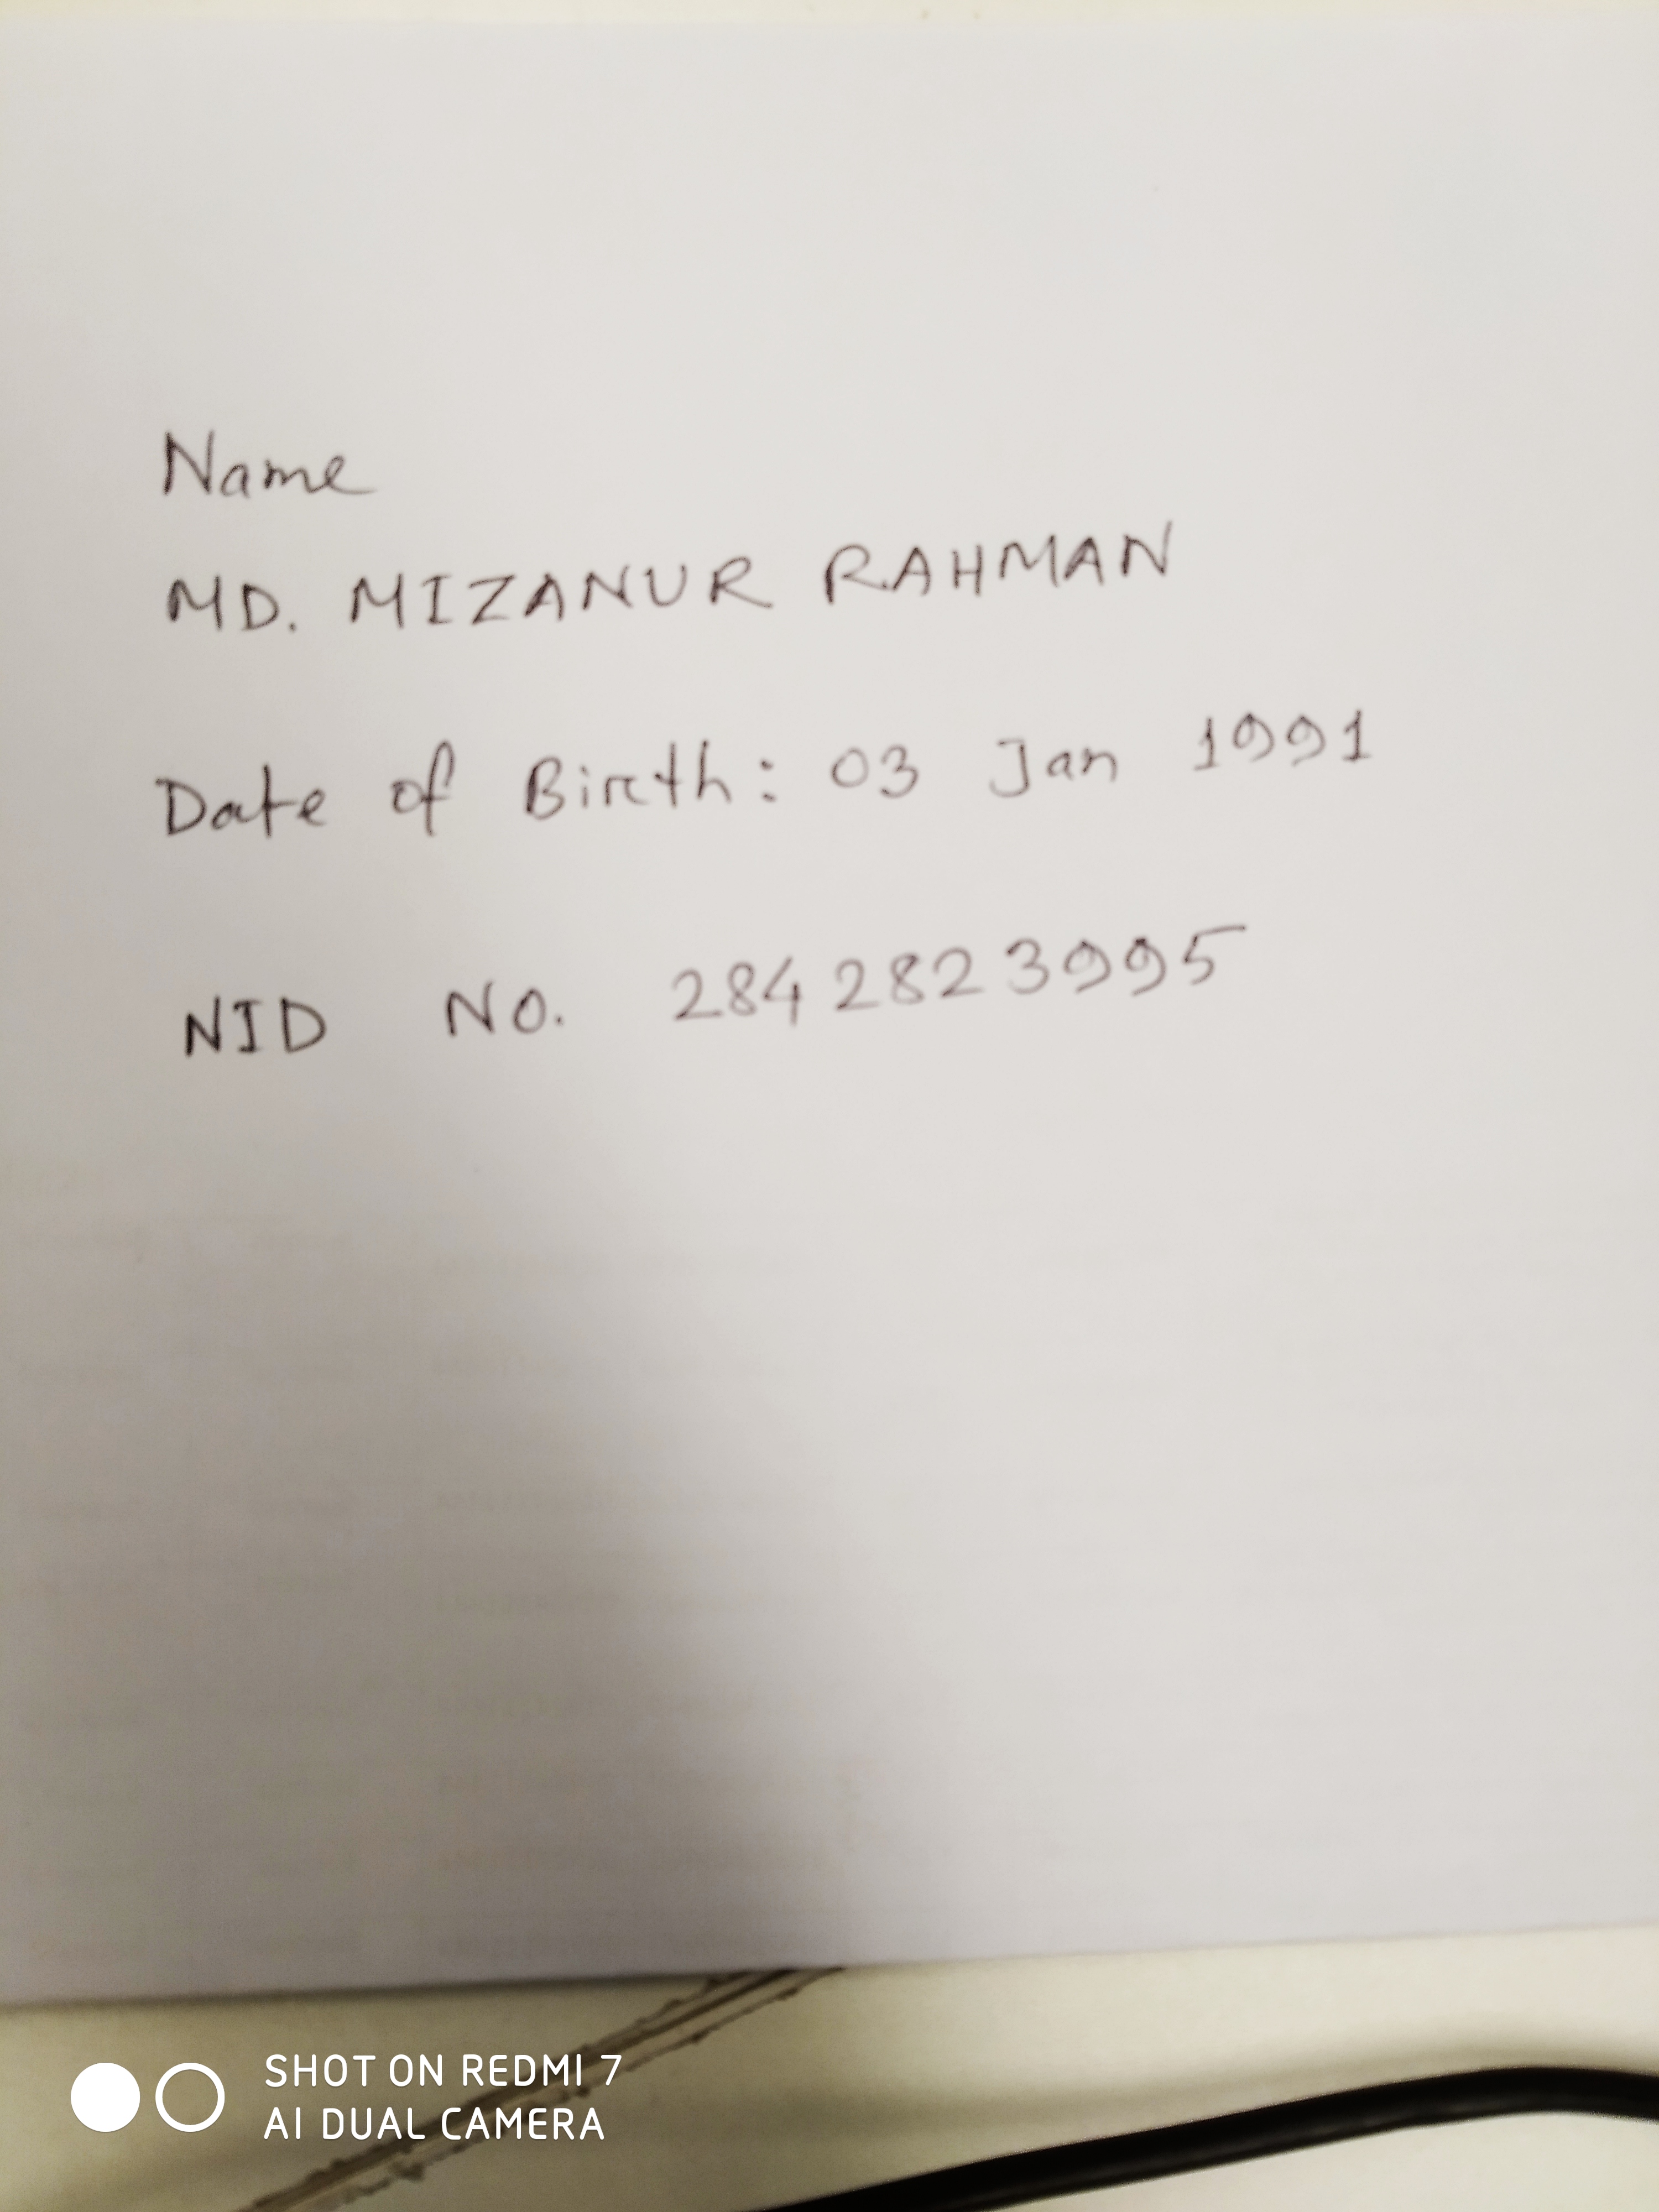 Name
MD. MIZANUR RAHMAN
Date of Birth: 03 Jan 1991
NID No. 284 282 3995
SHOT ON REDMI 7
AI DUAL CAMERA